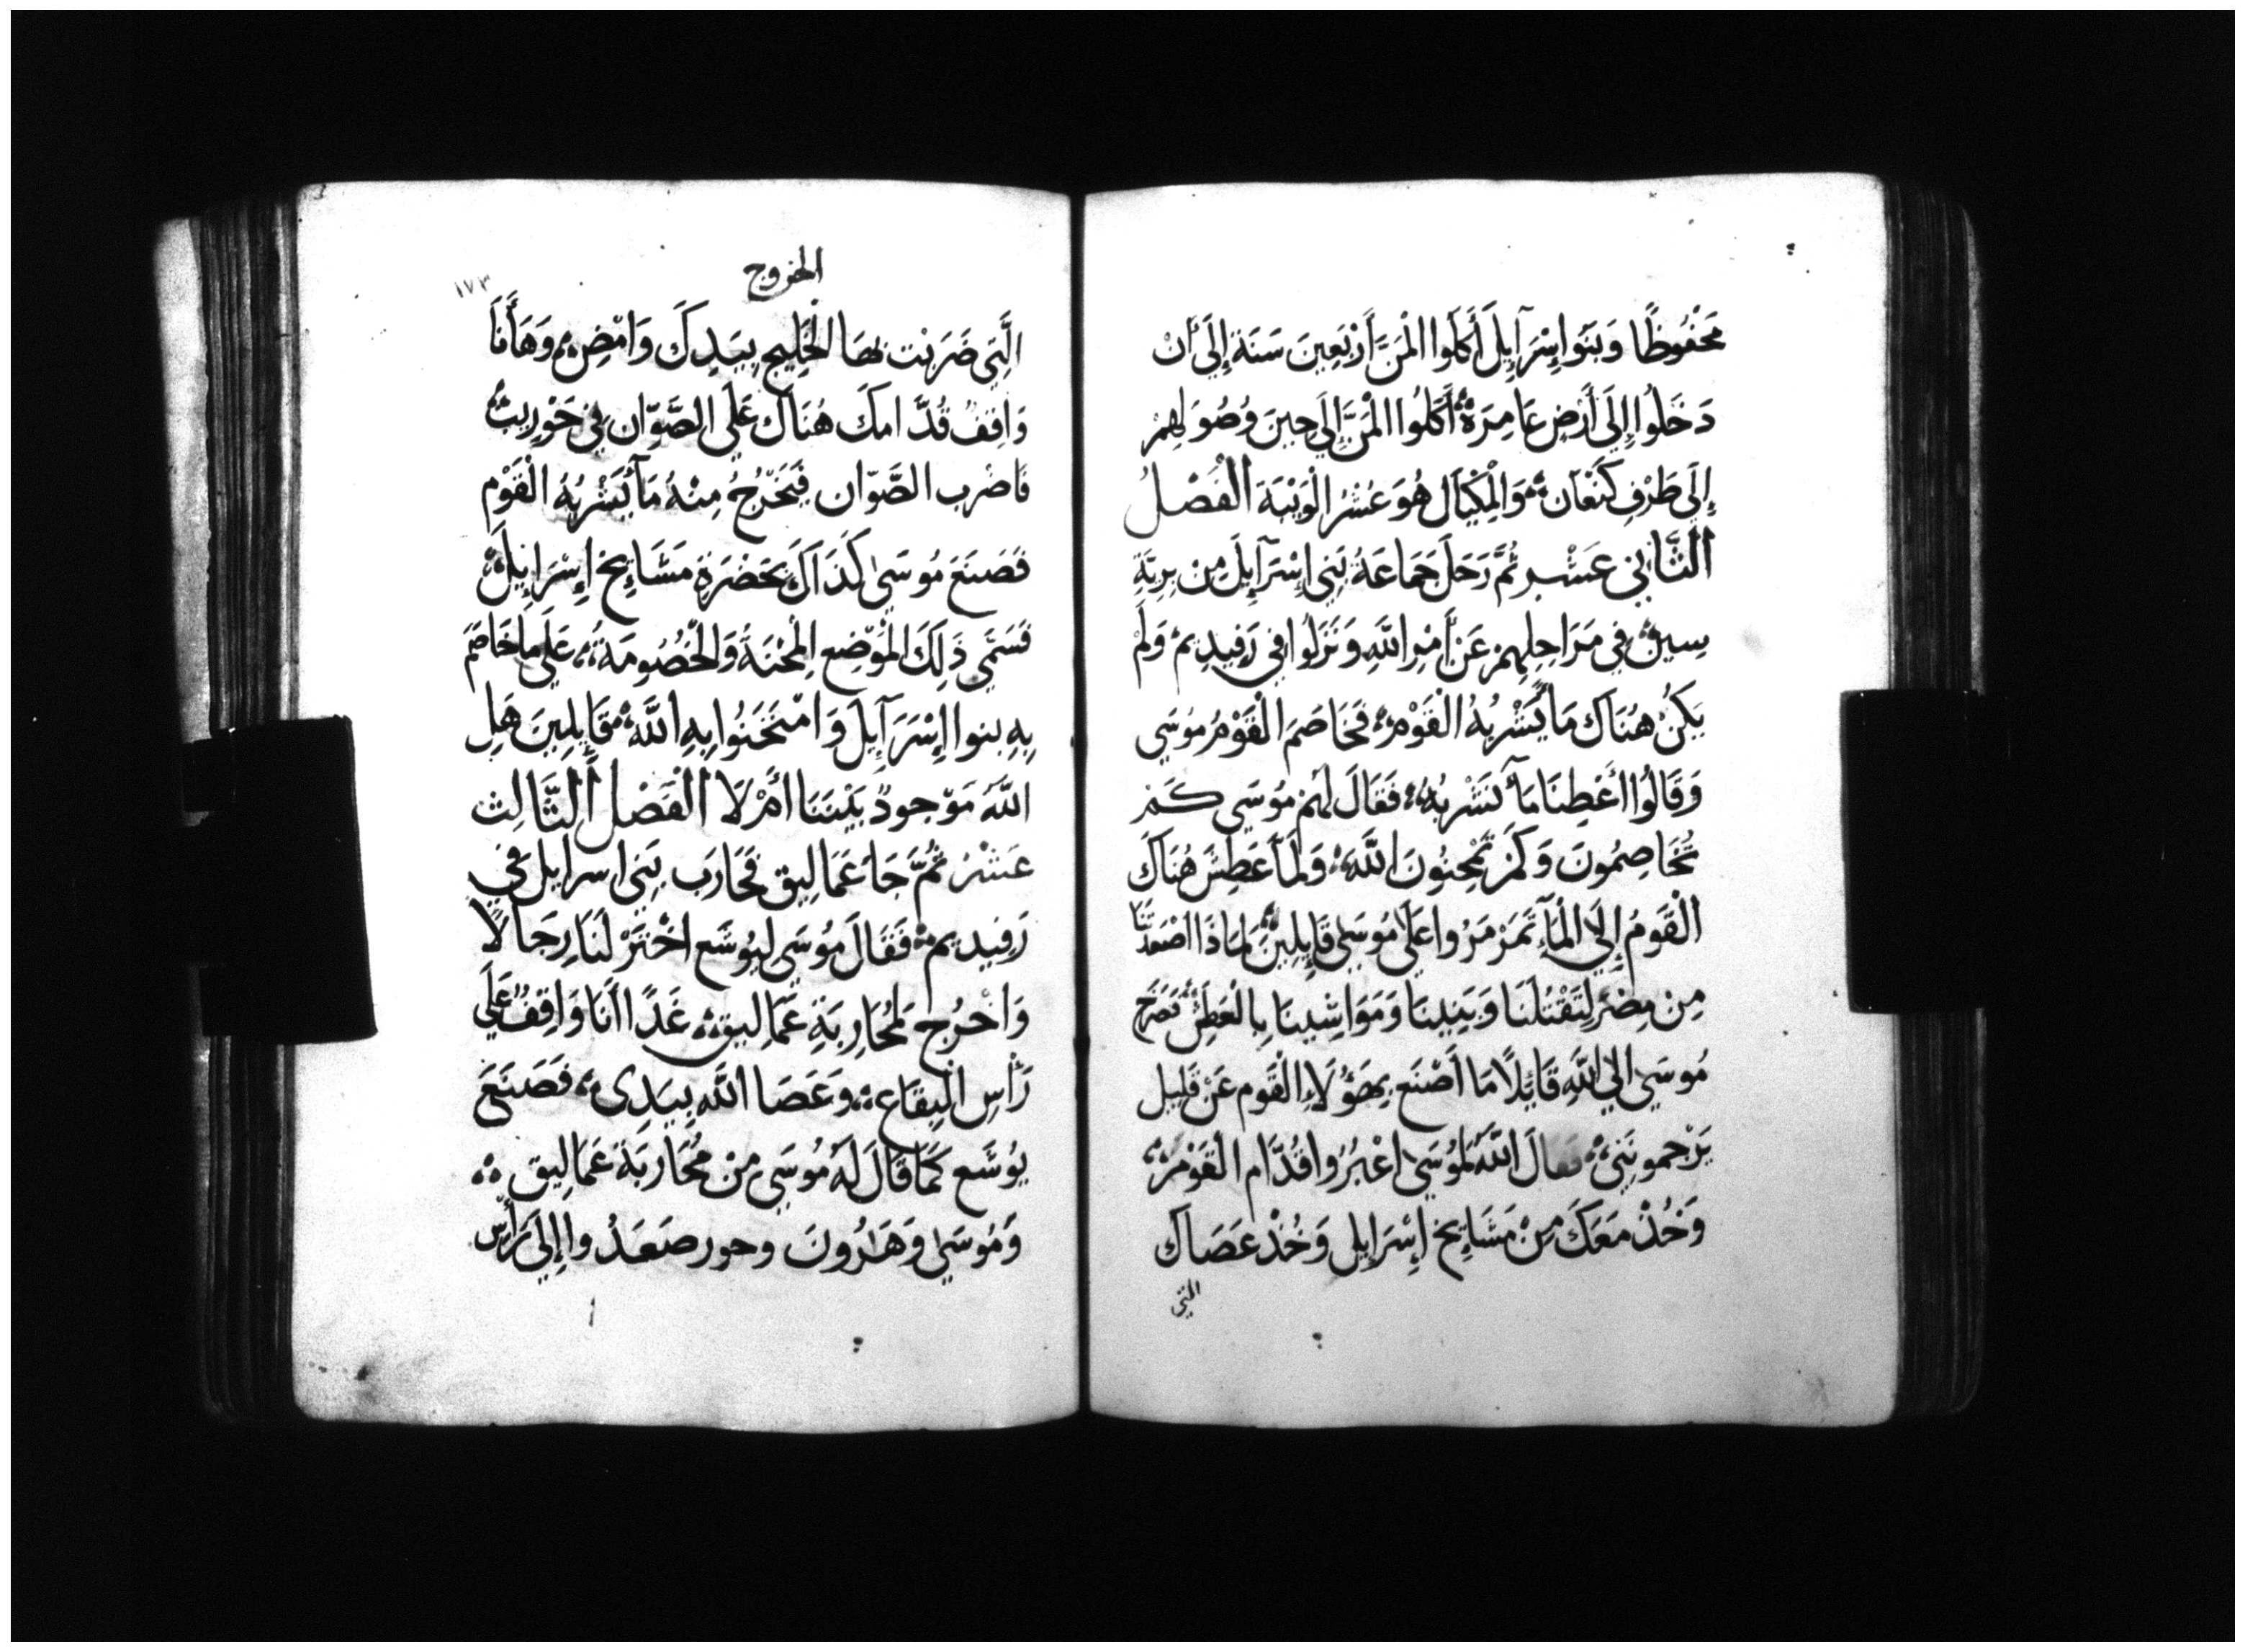 مَحْفُوظًا وَبَنَوا إِسْرَآيِلَ أَكَلُوا الْمَنَّ أَرْبَعِينَ سَنَة إِلَى أَنْ
دَخَلُوا إِلَى أَرْضٍ عَامِرَةٍ أَكَلُوا الْمَنَّ إِلَى حِينَ وُصُولِهِمْ
إِلَى طَرْفِ كَنْعَان وَالْمِكْيَال هُوَ عَشْرُ الْوَيْبَة الْفَصْلُ
الثَّانِي عَشْر ثُمَّ رَحَلَ جَمَاعَةُ بَنِي إِسْرَآيِلَ مِنْ بَرِيَّةِ
سِين فِي مَرَاحِلِهِمْ عَنْ أَمْرِ اللَّهِ وَنَزَلُوا فِي رَفِيدِيم وَلَمْ
يَكُنْ هُنَاكَ مَا يَشْرَبُهُ الْقَوْم فَخَاصَمَ الْقَوْمُ مُوسَى
وَقَالُوا أَعْطِنَا مَآ نَشْرَبُهُ فَقَالَ لَهُمْ مُوسَى كَمْ
تُخَاصِمُونَ وَكَمْ تَمْحِنُونَ اللَّهَ وَلَمَّا عَطِشَ هُنَاكَ
الْقَوْمُ إِلَى الْمَآءِ تَمَرْمَرُوا عَلَى مُوسَى قَايِلِينَ لِمَاذَا اصْعَدْتَّنَا
مِنْ مِصْرَ لِتَقْتُلَنَا وَبَنِينَا وَمَوَاشِينَا بِالْعَطَشِ فَصَرَخَ
مُوسَى إِلَى اللَّهِ قَايِلًا مَا أَصْنَع بِهَؤُلَاءِ الْقَوْم عَنْ قَلِيل
يَرْجمونَنِي فَقَالَ اللَّهُ لِمُوسَى اعْبُرُوا قُدَّام الْقَوْمِ
وَخُذْ مَعَكَ مِنْ مَشَايِخ إِسْرَايِل وَخُذْ عَصَاكَ
التي
الخروج
١٧٣
الَّتِي ضَرَبْت بِهَا الْخَلِيج بِيَدِكَ وَامْضِ وَهَا أَنَا
وَاقِفٌ قُدَّامكَ هُنَاكَ عَلَى الصَّوَّان فِي حَوْرِيبَ
فَاضْرِب الصَّوَّان فَيَخْرُجُ مِنْهُ مَآ يَشْرَبُهُ الْقَوْم
فَصَنَعَ مُوسَى كَذَاكَ بِحَضْرَةِ مَشَايِخ إِسْرَايِلَ
فَسَمَّى ذَلِكَ الْمَوْضِع الْمِحْنَةُ وَالْخُصُومَةُ عَلَى مَا خَاصَمَ
بِهِ بنوا إِسْرَآيِلَ وَامْتَحَنُوا بِهِ اللَّهَ قَايِلِينَ هَلِ
اللَّهُ مَوْجودٌ بَيْنَنَا أَمْ لَا الْفَصْل الثَّالِث
عَشْرُ ثُمَّ جَاءَ عَمَالِيق فَحَارَبَ بَنِي اسرايل في
رَفِيدِيم فَقَالَ مُوسَى لِيُوشَع اخْتَرْ لَنَا رِجَالًا
وَاخْرُج لِمُحَارِبَةِ عَمَالِيق غَدًا أَنَا وَاقِفٌ عَلَى
رَأْسِ الْبِقَاع وَعَصَا اللَّهِ بِيَدِى فَصَنَعَ
يُوشَع كَمَا قَالَ لَهُ مُوسَى مِنْ مُحَارَبَة عَمَالِيق
وَمُوسَى وَهَارُونَ وحور صَعَدُوا إِلَى رَأْسِ